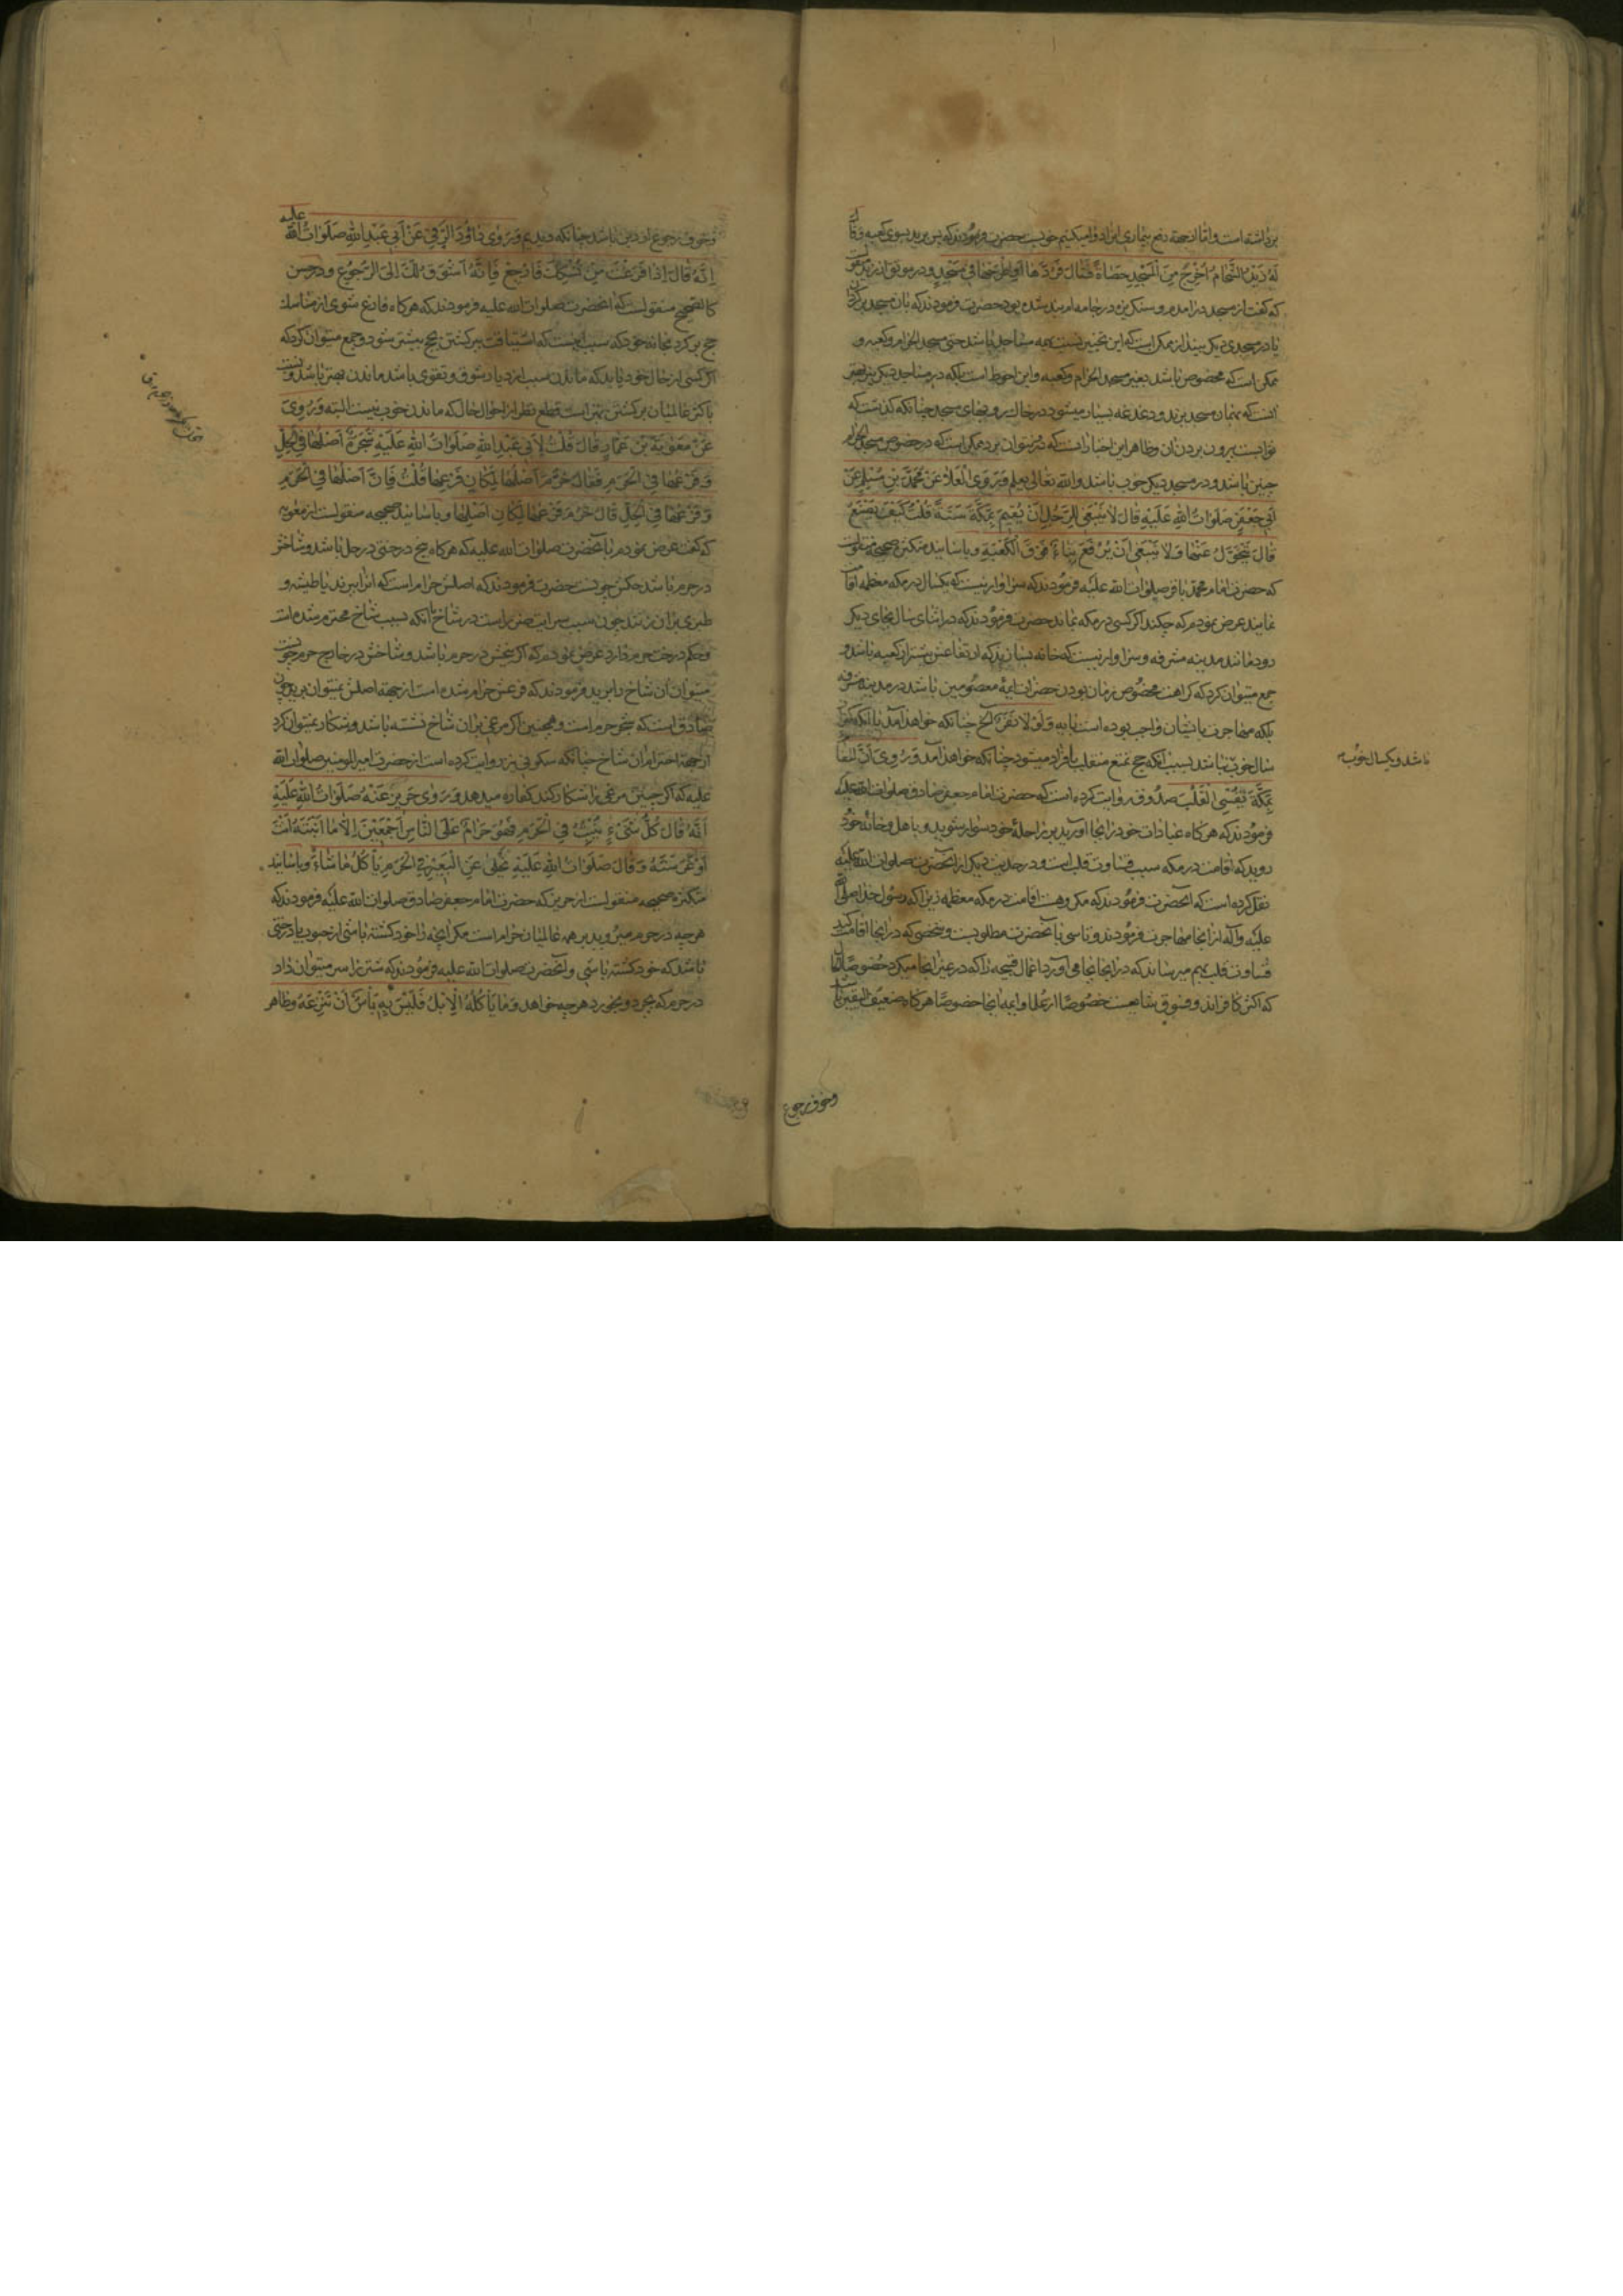 برداشته است و اما از جهة دفع بیماری انرا دوا میکنیم خوبست حضرت فرمودند که پس برید بسوی کعبه وقال
لَهُ زَیْدُ الشَّحَّامُ اُخْرِجُ مِنَ الْمَسْجِدِ حَصَاةً فَقَالَ فَرُدَّهَا اَوِ اطْرَحْهَا فِي مَسْجِدٍ و در موثق از زید منقولست
که گفت از مسجد در آمدم و سنکریزه در جامه ام بند شده بود حضرت فرمودند که بان مسجد برکردان
یا در مسجدی دیکر بینداز ممکن است که این تخییر نسبت بهمه مساجد باشد حتی مسجد الحرام و کعبه و
ممکن است که مخصوص باشد بغیر مسجد الحرام و کعبه و این احوط است بلکه در مساجد دیکر نیز بهتر
انست که بهمان مسجد برند و دغدغه بسیار میشود در خاک روبهای مسجد چنانکه کذشت که
توابست بیرون بردن ان وظاهر این اخبار انست که نتوان برد ممکن است که در خصوص مسجد الحرام
چنین باشد و در مسجد دیکر خوب باشد والله تعالی یعلم وَرَوَی الْعَلَاءُ عَنْ مُحَمَّدِ بْنِ مُسْلِمٍ عَنْ
اَبِي جَعْفَرٍ صَلَوَاتُ اللهِ عَلَیْهِ قَالَ لَا یَنْبَغِی لِلرَّجُلِ اَنْ یُقِیمَ بِمَکَّةَ سَنَةً قُلْتُ کَیْفَ یَصْنَعُ
قَالَ یَتَحَوَّلُ عَنْهَا وَلَا یَنْبَغِی اَنْ یَرْفَعَ بِنَاءً فَوْقَ الْکَعْبَةِ و باسانید متکثره صحیحه منقولست
که حضرت امام محمد باقر صلوات الله علیه فرمودند که سزاوار نیست که یکسال در مکه معظمه اقامت
نمایند عرض نمودم که چکند اکر کسی در مکه بماند حضرت فرمودند که در اثنای سال بجای دیکر
رود مانند مدینه مشرفه و سزاوار نیست که خانه بسازند که ارتفاعش بیشتر از کعبه باشد و
جمع میتوان کرد که کراهت مخصوص زمان بودن حضرات ایمهٔ معصومین باشد در مدینه مشرفه
بلکه مهاجرت بایشان واجب بوده است بایه وَلَوْلَا نَفَرَ الخ چنانکه خواهد آمد یا آنکه
سال خوب باشد بسبب آنکه حج تمتع منقلب بافراد میشود چنانکه خواهد آمد وَرُوِیَ اَنَّ الْمُقَامَ
بِمَکَّةَ یُقْسِی الْقَلْبَ صدوق روایت کرده است که حضرت امام جعفر صادق صلوات الله علیه
فرمودند که هرکاه عبادات خود را بجا آورید بر راحلهٔ خود سوار شوید و باهل و خانهٔ خود
روید که اقامت در مکه سبب قساوت قلب است و در حدیث دیکر از آنحضرت صلوات الله علیه
نقل کرده است که آنحضرت فرمودند که مکروهست اقامت در مکه معظمه زیرا که رسول خدا صلی الله
علیه وآله از انجا مهاجرت فرمودند و تاسی بآنحضرت مطلوبست و شخصی که در آنجا اقامت کند
قساوت قلب بهم میرساند که در آنجا بجا می آورد اعمال قبیحه را که در غیر انجا میکرد خصوصا انها
که اکثر کافراند و فسوق شایعست خصوصًا از علما و ایمه انجا خصوصًا هرکاه ضعیف الیقین باشد
باشد و یکسال خوب
وخوف رجوع
وخوف رجوع از دین باشد چنانکه دیدیم وَرَوَی دَاوُدُ الرَّقِّيُّ عَنْ اَبِي عَبْدِ اللهِ صَلَوَاتُ اللهِ علیه
اَنَّهُ قَالَ اِذَا فَرَغْتَ مِنْ نُسُکِکَ فَارْجِعْ فَاِنَّهُ اَشْوَقُ لَکَ اِلَی الرُّجُوعِ و در حسن
کالصحیح منقولست که آنحضرت صلوات الله علیه فرمودند که هرکاه فارغ شوی از مناسک
حج برکرد بخانه خود که سبب اینست که اشتیاقت ببرکشتن بحج بیشتر شود و جمع میتوان کرد که
اکر کسی از حال خود یابد که ماندن سبب ازدیاد شوق و تقوی باشد ماندن بهتر باشد و نسبت
باکثر عالمیان برکشتن بهتر است قطع نظر از احوال حال که ماندن خوب نیست البته وَرُوِیَ
عَنْ مُعَوِیَةَ بْنِ عَمَّارٍ قَالَ قُلْتُ لِاَبِي عَبْدِ اللهِ صَلَوَاتُ اللهِ عَلَیْهِ شَجَرَةٌ اَصْلُهَا فِي الْحِلِّ
وَفَرْعُهَا فِي الْحَرَمِ فَقَالَ حَرُمَ اَصْلُهَا لِمَکَانِ فَرْعِهَا قُلْتُ فَاِنَّ اَصْلَهَا فِي الْحَرَمِ
وَفَرْعَهَا فِي الْحِلِّ قَالَ حَرُمَ فَرْعُهَا لِمَکَانِ اَصْلِهَا و باسانید صحیحه منقولست از معویه
که کفت عرض نمودم بآنحضرت صلوات الله علیه که هرکاه بیخ درختی در حل باشد و شاخش
در حرم باشد حکمش چونست حضرت فرمودند که اصلش حرام است که انرا ببرند یا طیشه و
طبری بران زنند چون سبب سرایت ضرر است در شاخ بآنکه بسبب شاخ محترم شده است
وحکم درخت حرم دارد عرض نمودم که اکر بیخش در حرم باشد و شاخش در خارج حرم چونست
میتوان آن شاخ را برید فرمودند که فرعش حرام شده است از جهة اصلش نمیتوان برید چون
صادق است که شجر حرم است و همچنین اکر مرغی بران شاخ نشسته باشد و شکار نمیتوان کرد
از جهة احترام آن شاخ چنانکه سکونی نیز روایت کرده است از حضرت امیرالمومنین صلوات الله
علیه که اکر چنین مرغی را شکار کند کفاره میدهد وَرَوَی حَرِیزٌ عَنْهُ صَلَوَاتُ اللهِ عَلَیْهِ
اَنَّهُ قَالَ کُلُّ شَیْءٍ یَنْبُتُ فِي الْحَرَمِ فَهُوَ حَرَامٌ عَلَی النَّاسِ اَجْمَعِینَ اِلَّا مَا اَنْبَتَّهُ اَنْتَ
اَوْ غَرَسْتَهُ وَقَالَ صَلَوَاتُ اللهِ عَلَیْهِ یُخَلَّی عَنِ الْبَعِیرِ فِي الْحَرَمِ یَأْکُلُ مَا شَاءَ و باسانید
متکثره صحیحه منقولست از حریز که حضرت امام جعفر صادق صلوات الله علیه فرمودند که
هرچه در حرم میروید بر همه عالمیان حرام است مکر آنچه را خود کشته باشی از حبوب یا درختی
باشد که خود کشته باشی و آنحضرت صلوات الله علیه فرمودند که شتر را سر میتوان داد
در حرم که بچرد و بخورد هرچه خواهد وَمَا یَأْکُلُهُ الْاِبِلُ فَلَیْسَ بِهِ بَأْسٌ اَنْ تَنْزِعَهُ وظاهر